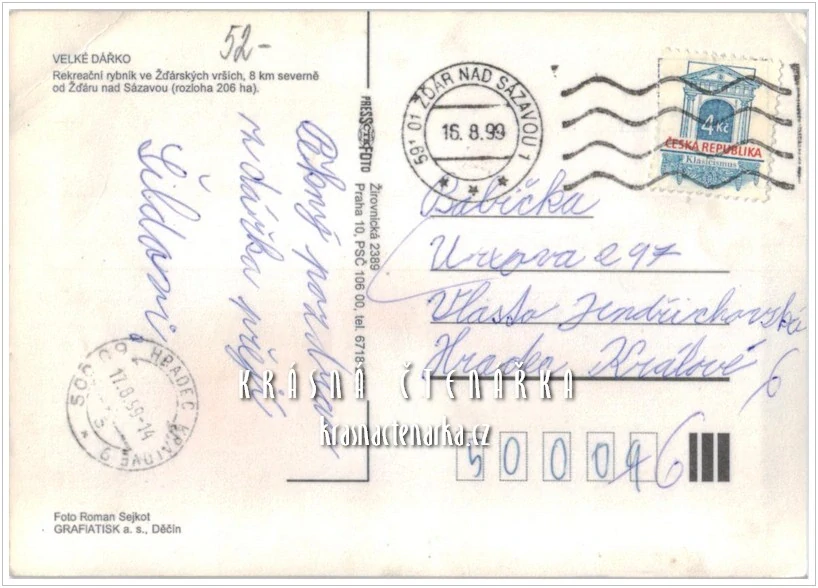 52-
VELKÉ DÁŘKO
Rekreační rybník ve Žďárských vrších, 8 km severně
od Žďáru nad Sázavou (rozloha 206 ha).
PRESS FOTO
Žirovnická 2389
Praha 10, PSČ 106 00, tel. 6718
591 01 ŽĎÁR NAD SÁZAVOU 1
16.8.99
4 Kč
ČESKÁ REPUBLIKA
Klasicismus
z dářka
Babička
297
Vlasta Jendřichovská
Hradec Králové
6
5 0 0 0
6
HRADEC KRÁLOVÉ
17.8.99-14
KRÁSNÁ ČTENÁŘKA
krasnactenarka.cz
Foto Roman Sejkot
GRAFIATISK a. s., Děčín